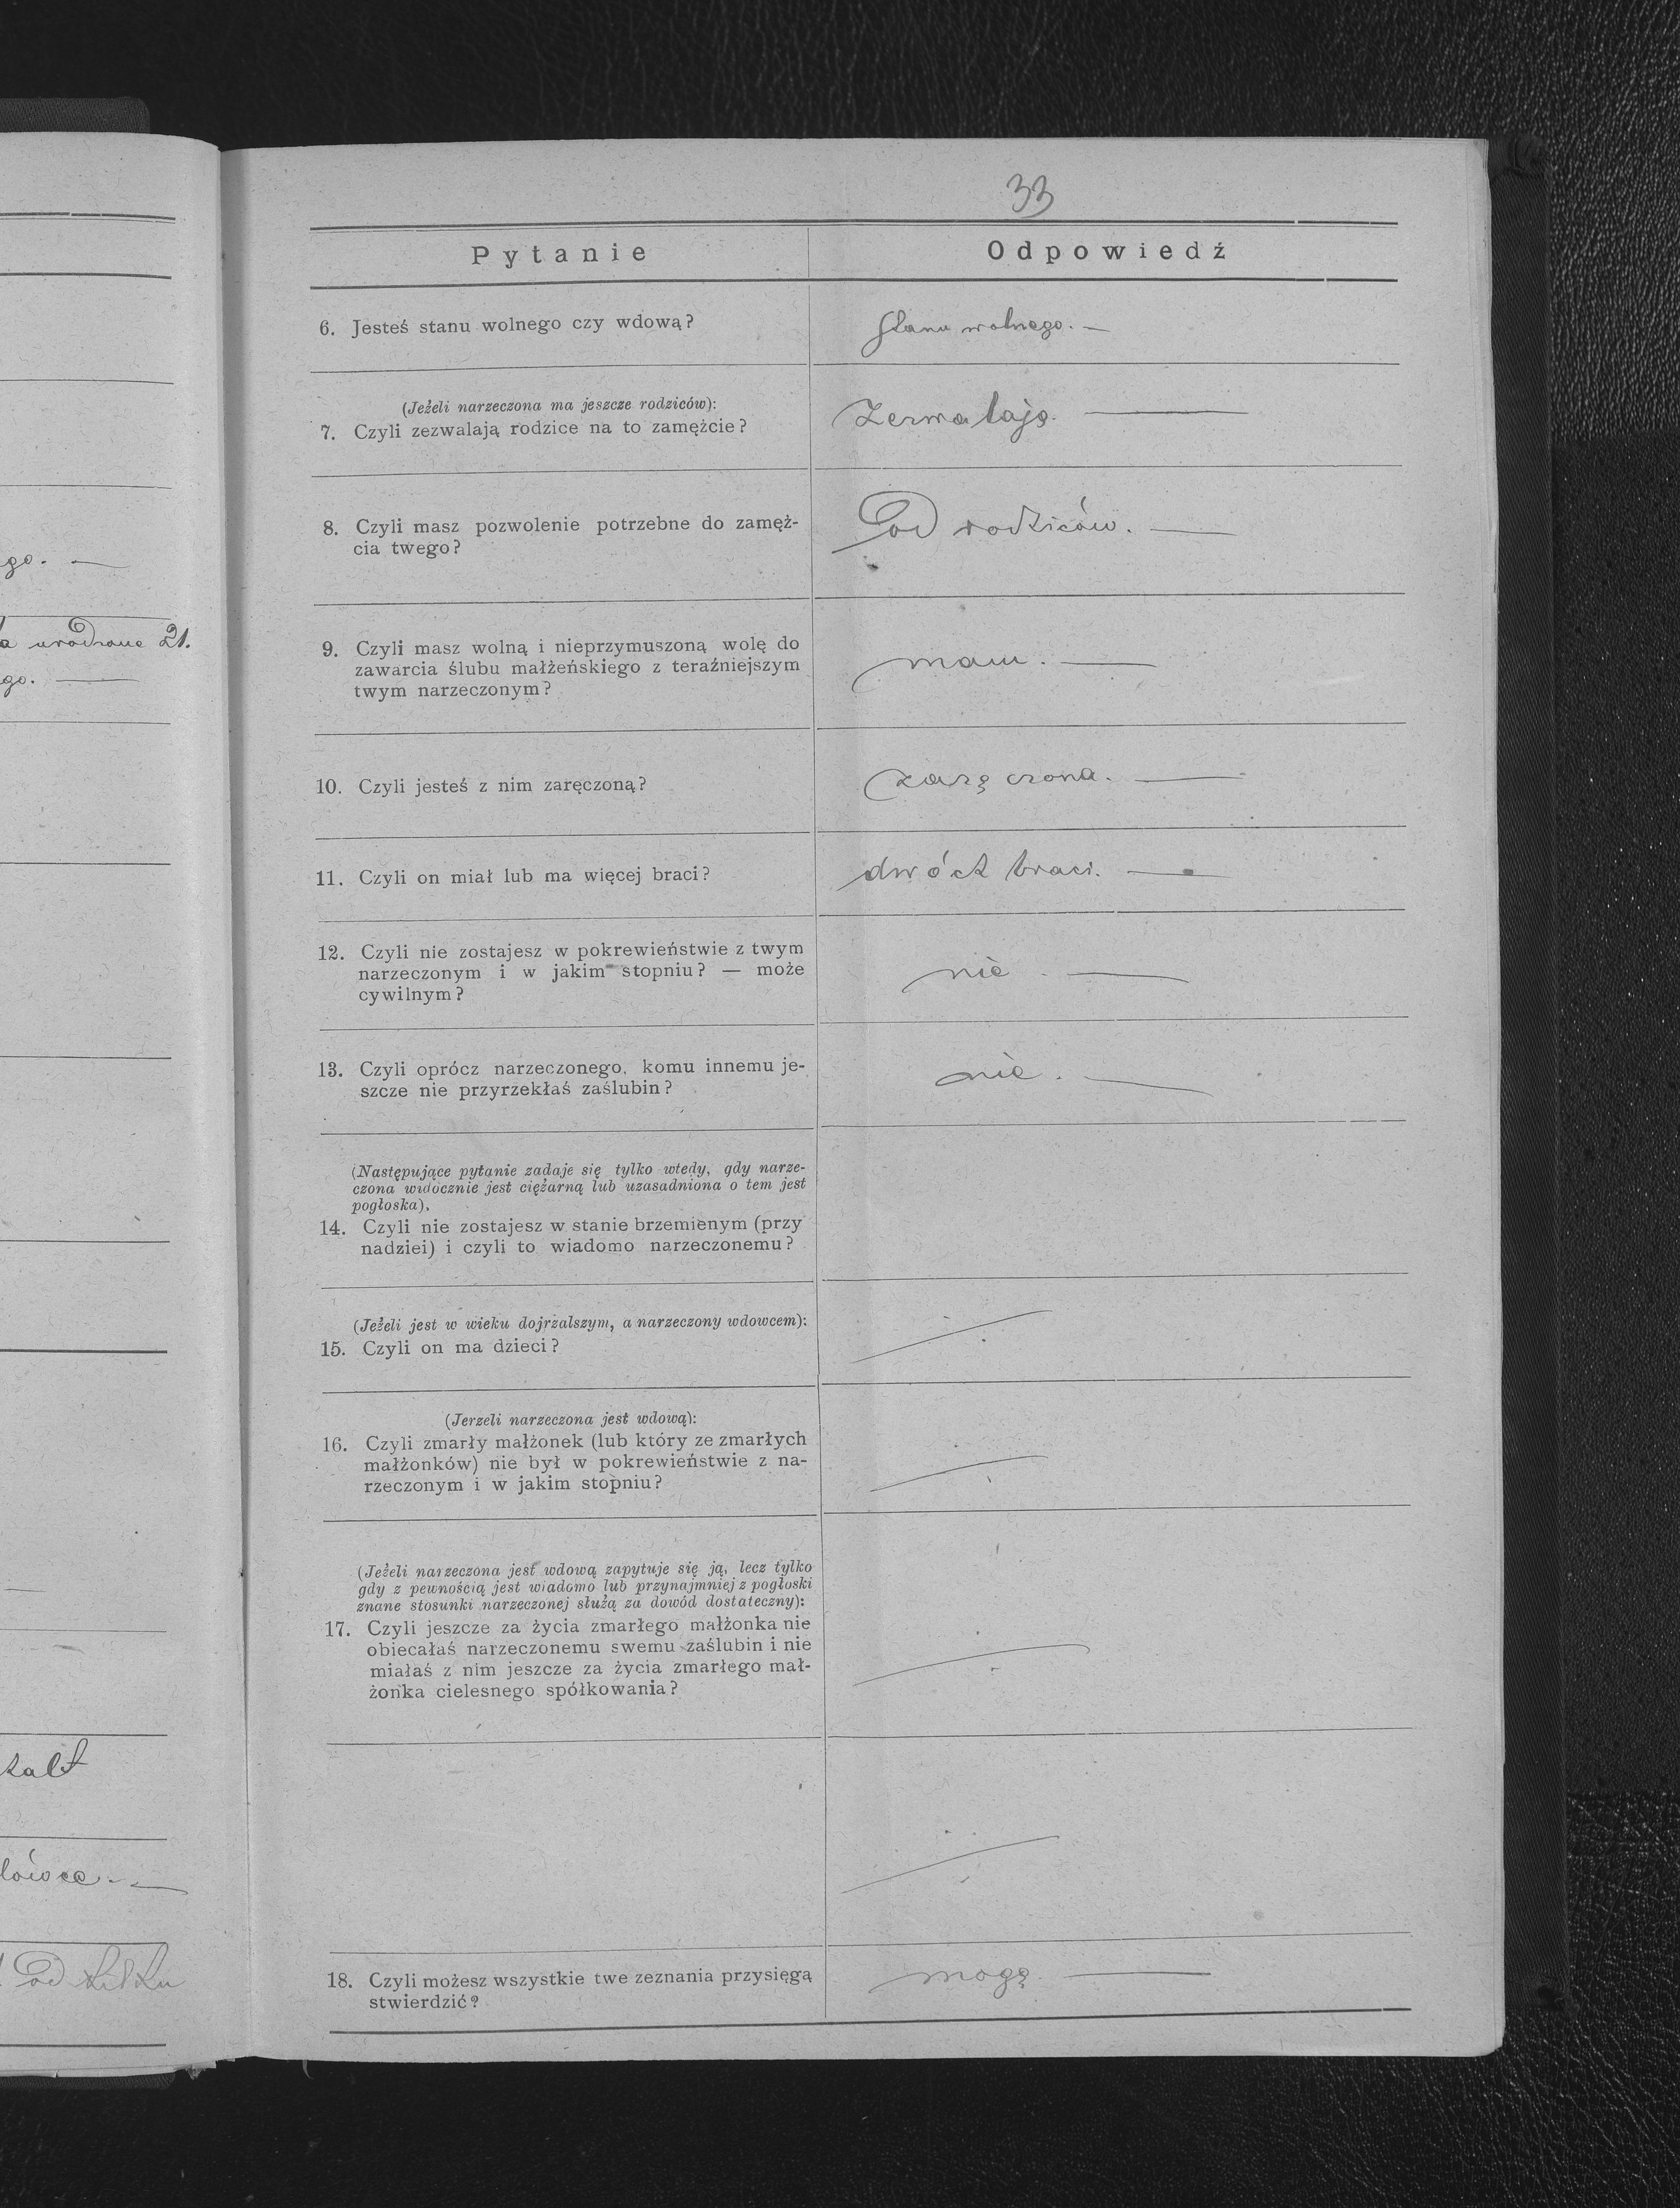 33
Pytanie
Odpowiedź
6. Jesteś stanu wolnego czy wdową?
Stanu wolnego. —
(Jeżeli narzeczona ma jeszcze rodziców):
7. Czyli zezwalają rodzice na to zamężcie?
Zezwalają. —
8. Czyli masz pozwolenie potrzebne do zamęż-
cia twego?
Od rodziców. —
9. Czyli masz wolną i nieprzymuszoną wolę do
zawarcia ślubu małżeńskiego z teraźniejszym
twym narzeczonym?
mam. —
10. Czyli jesteś z nim zaręczoną?
zaręczona. —
11. Czyli on miał lub ma więcej braci?
dwóch braci. —
12. Czyli nie zostajesz w pokrewieństwie z twym
narzeczonym i w jakim stopniu? — może
cywilnym?
nie. —
13. Czyli oprócz narzeczonego, komu innemu je-
szcze nie przyrzekłaś zaślubin?
nie. —
(Następujące pytanie zadaje się tylko wtedy, gdy narze-
czona widocznie jest ciężarną lub uzasadniona o tem jest
pogłoska).
14. Czyli nie zostajesz w stanie brzemienym (przy
nadziei) i czyli to wiadomo narzeczonemu?
(Jeżeli jest w wieku dojrzalszym, a narzeczony wdowcem):
15. Czyli on ma dzieci?
(Jerzeli narzeczona jest wdową):
16. Czyli zmarły małżonek (lub który ze zmarłych
małżonków) nie był w pokrewieństwie z na-
rzeczonym i w jakim stopniu?
(Jeżeli narzeczona jest wdową zapytuje się ją, lecz tylko
gdy z pewnością jest wiadomo lub przynajmniej z pogłoski
znane stosunki narzeczonej służą za dowód dostateczny):
17. Czyli jeszcze za życia zmarłego małżonka nie
obiecałaś narzeczonemu swemu zaślubin i nie
miałaś z nim jeszcze za życia zmarłego mał-
żonka cielesnego spółkowania?
18. Czyli możesz wszystkie twe zeznania przysięgą
stwierdzić?
mogę. —